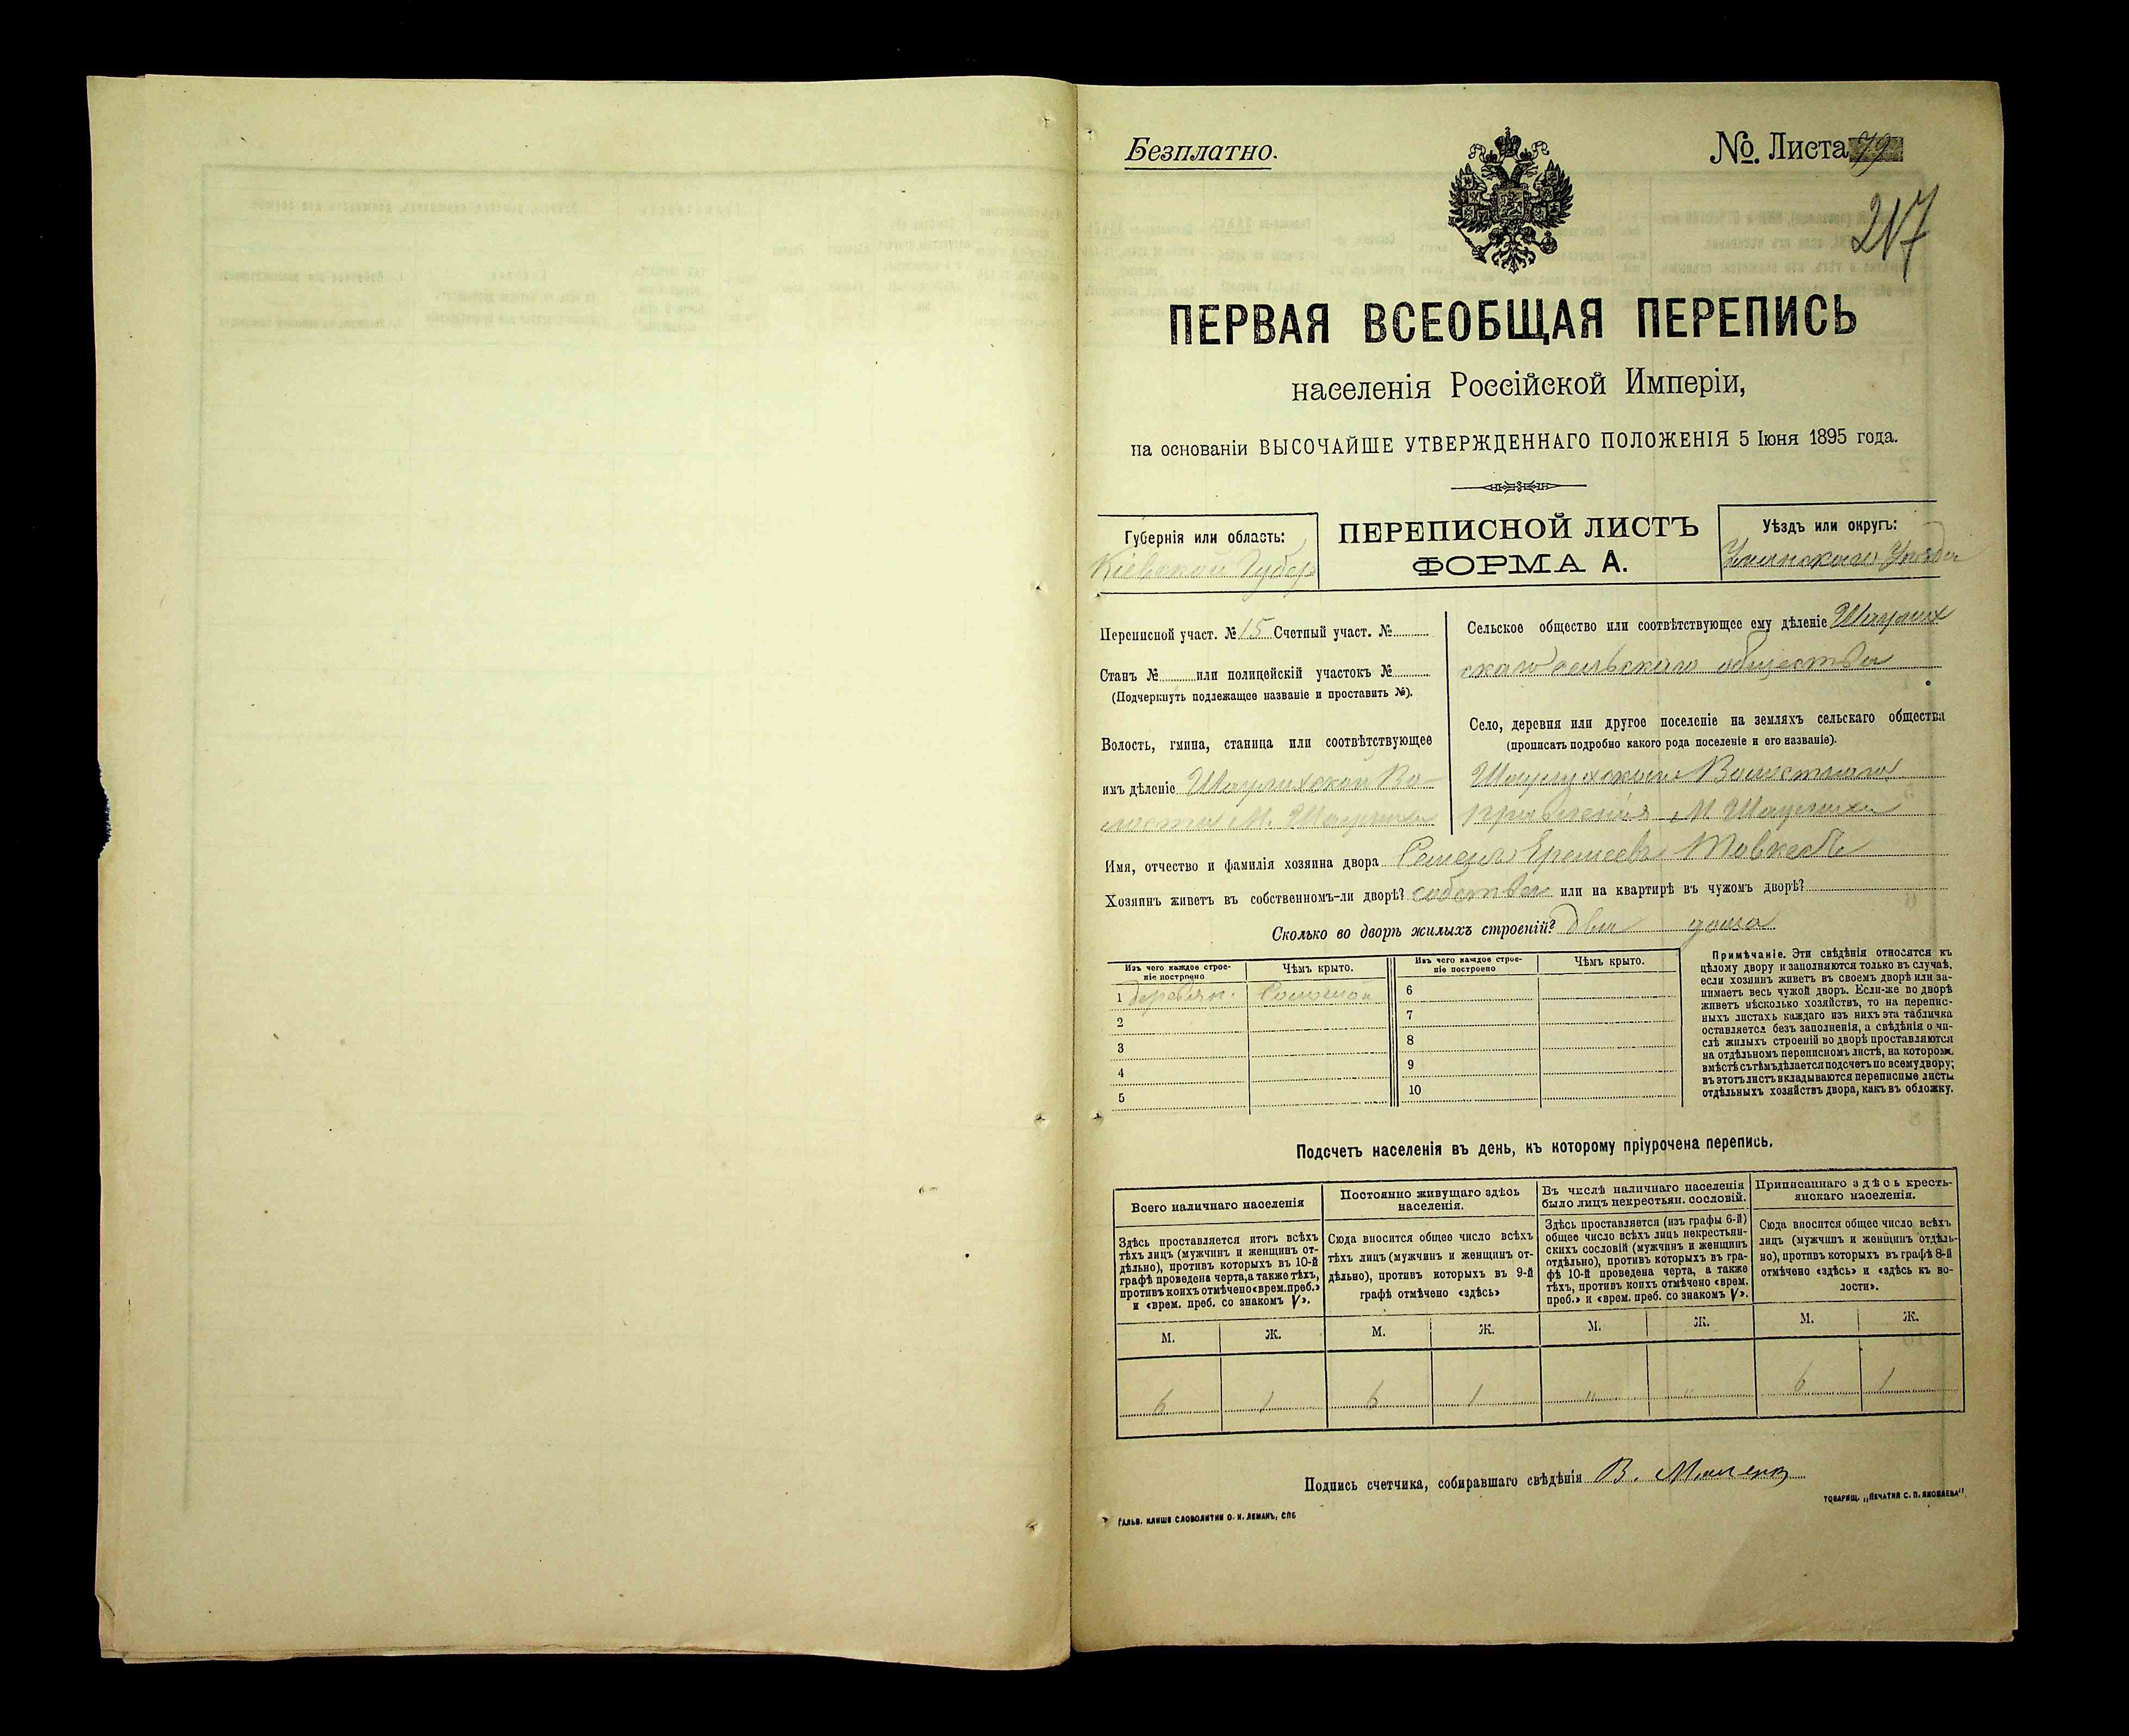 Безплатно.
№. Листа 79
217
ПЕРВАЯ ВСЕОБЩАЯ ПЕРЕПИСЬ
населенія Россійской Имперіи,
на основаніи ВЫСОЧАЙШЕ УТВЕРЖДЕННАГО ПОЛОЖЕНІЯ 5 Іюня 1895 года.
Губернія или область:
Кіевской Губер
ПЕРЕПИСНОЙ ЛИСТЪ
ФОРМА А.
Уѣздъ или округъ:
Уманскаго Уѣзда
Переписной участ. № 15 Счетный участ. №
Станъ № или полицейскій участокъ №
(Подчеркнуть подлежащее названіе и проставить №).
Волость, гмина, станица или соотвѣтствующее
имъ дѣленіе Шаулихской Во-
лости М. Шаулиха
Сельское общество или соотвѣтствующее ему дѣленіе Шаулих
скаго сельскаго общества
Село, деревня или другое поселеніе на земляхъ сельскаго общества
(прописать подробно какого рода поселеніе и его названіе).
Шаулихскаго Волостнаго
правленія М. Шаулиха
Имя, отчество и фамилія хозяина двора Семенъ
Хозяинъ живетъ въ собственномъ-ли дворѣ? собствен или на квартирѣ въ чужомъ дворѣ?
Сколько во дворѣ жилыхъ строеній? два дома
Изъ чего каждое строе-
ніе построено
Чѣмъ крыто.
Изъ чего каждое строе-
ніе построено
Чѣмъ крыто.
1 деревян. Соломой
2
3
4
5
6
7
8
9
10
Примѣчаніе. Эти свѣдѣнія относятся къ
цѣлому двору и заполняются только въ случаѣ,
если хозяинъ живетъ въ своемъ дворѣ или за-
нимаетъ весь чужой дворъ. Если-же во дворѣ
живетъ нѣсколько хозяйствъ, то на перепис-
ныхъ листахъ каждаго изъ нихъ эта табличка
оставляется безъ заполненія, а свѣдѣнія о чи-
слѣ жилыхъ строеній во дворѣ проставляются
на отдѣльномъ переписномъ листѣ, на которомъ
вмѣстѣ съ тѣмъ дѣлается подсчетъ по всему двору;
въ этотъ листъ вкладываются переписные листы
отдѣльныхъ хозяйствъ двора, какъ въ обложку.
Подсчетъ населенія въ день, къ которому пріурочена перепись.
Всего наличнаго населенія
Здѣсь проставляется итогъ всѣхъ
тѣхъ лицъ (мужчинъ и женщинъ от-
дѣльно), противъ которыхъ въ 10-й
графѣ проведена черта, а также тѣхъ,
противъ коихъ отмѣчено «врем. преб.»
и «врем. преб. со знакомъ V».
Постоянно живущаго здѣсь
населенія.
Сюда вносится общее число всѣхъ
тѣхъ лицъ (мужчинъ и женщинъ от-
дѣльно), противъ которыхъ въ 9-й
графѣ отмѣчено «здѣсь»
Въ числѣ наличнаго населенія
было лицъ некрестьян. сословій.
Здѣсь проставляется (изъ графы 6-й)
общее число всѣхъ лицъ некрестьян-
скихъ сословій (мужчинъ и женщинъ
отдѣльно), противъ которыхъ въ гра-
фѣ 10-й проведена черта, а также
тѣхъ, противъ коихъ отмѣчено «врем.
преб.» и «врем. преб. со знакомъ V».
Приписаннаго здѣсь кресть-
янскаго населенія.
Сюда вносится общее число всѣхъ
лицъ (мужчинъ и женщинъ отдѣль-
но), противъ которыхъ въ графѣ 8-й
отмѣчено «здѣсь» и «здѣсь къ во-
лости».
М. Ж. М. Ж. М. Ж. М. Ж.
6 1 6 1 " " 6 1
Подпись счетчика, собиравшаго свѣдѣнія В.
ГАЛЬВ. КЛИШЕ СЛОВОЛИТНИ О. И. ЛЕМАНЪ, СПБ
ТОВАРИЩ. „ПЕЧАТНЯ С. П. ЯКОВЛЕВА"